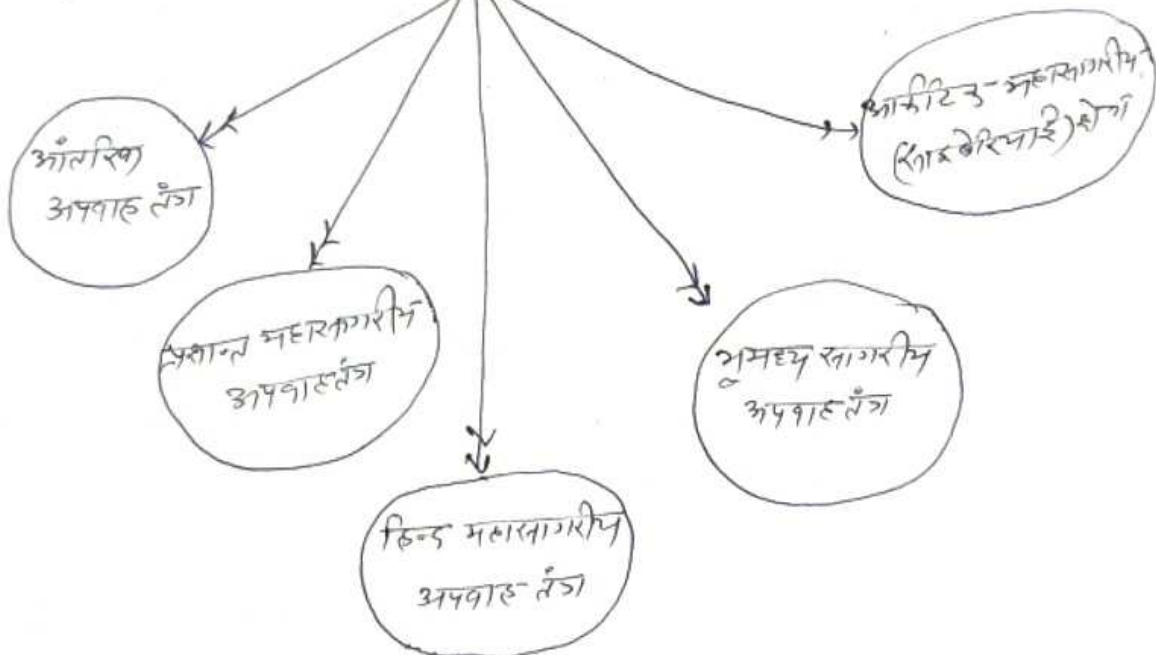 आंतरिक
अपवाह तंत्र
प्रशान्त महासागरीय
अपवाह तंत्र
हिन्द महासागरीय
अपवाह-तंत्र
भूमध्य सागरीय
अपवाह तंत्र
आर्कटिक-महासागरीय
(साइबेरियाई) क्षेत्र